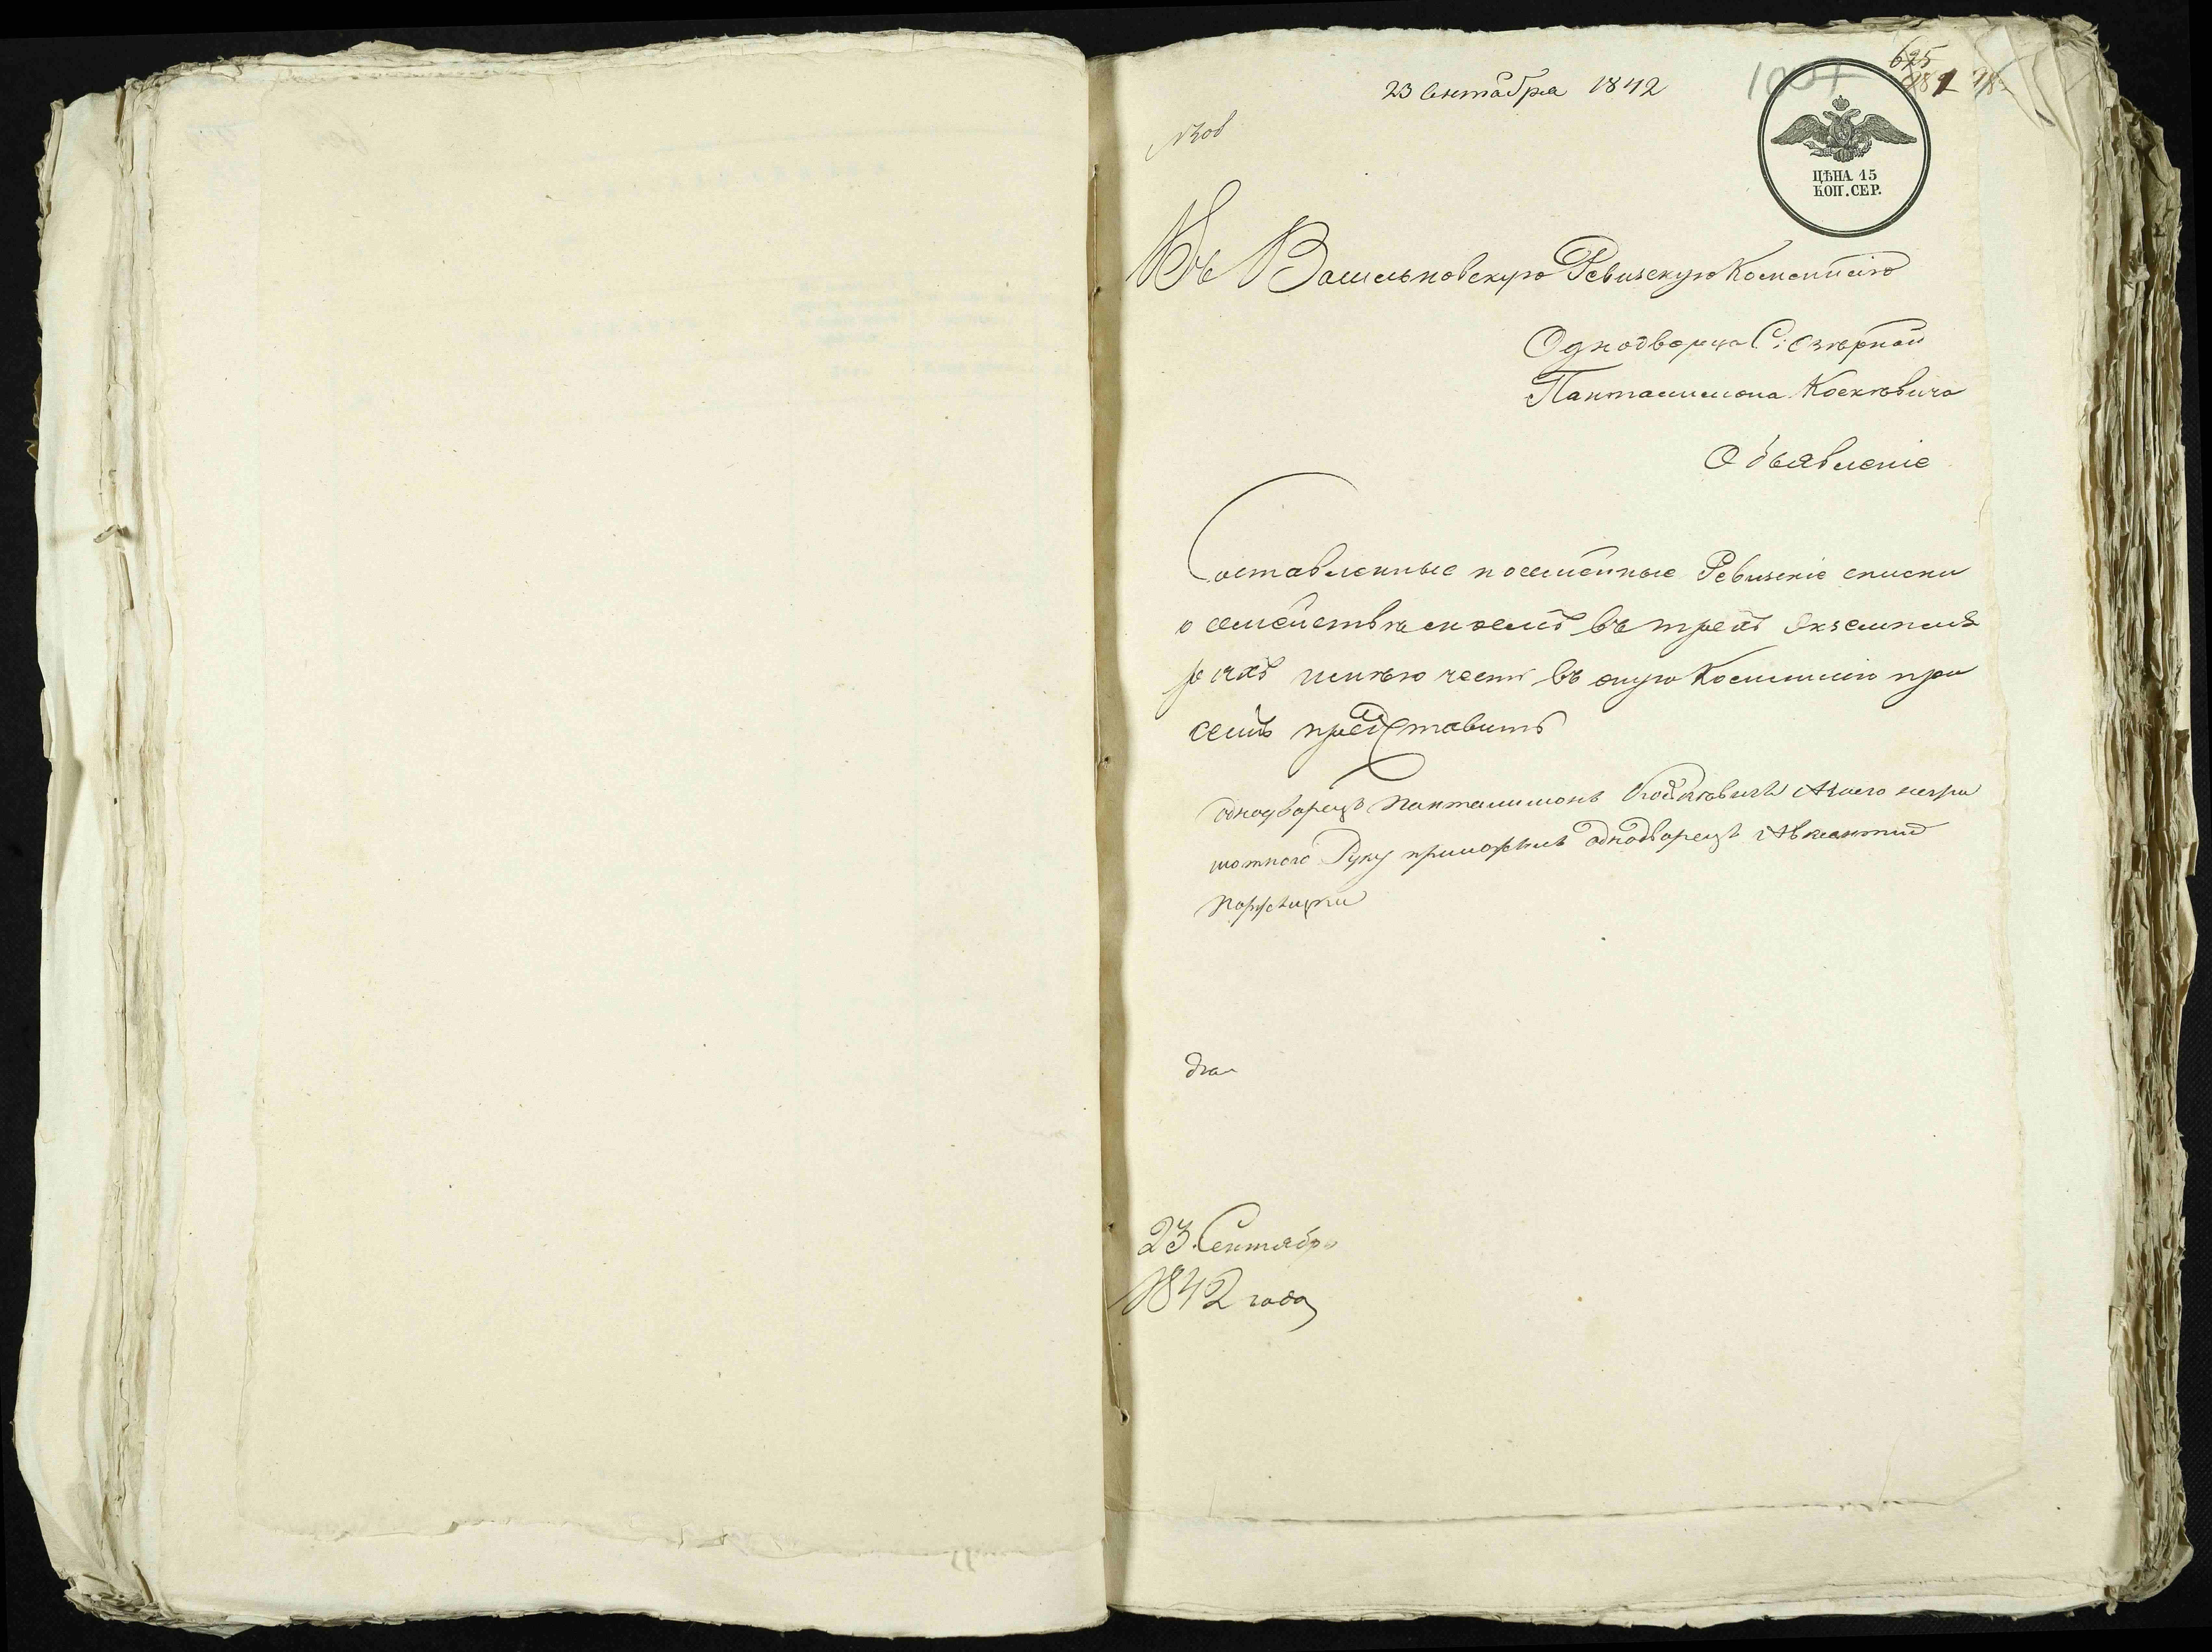 23 Сентября 1842
ЦѢНА 15
КОП. СЕР.
Въ Васильковскую Ревизскую Коммисію
Однодворца С: Озѣрной
Панталимона Коскювича
Объявленіе
Составленные посемейные Ревизскіе списки
о семействѣ моемъ въ трехъ Экземпля
рахъ имѣю честь въ оную Коммисію при
семъ представить
однодворецъ Панталимонъ Коскювичъ А за его негра
мотного Руку приложилъ однодворецъ
23 Сентября
1842 года